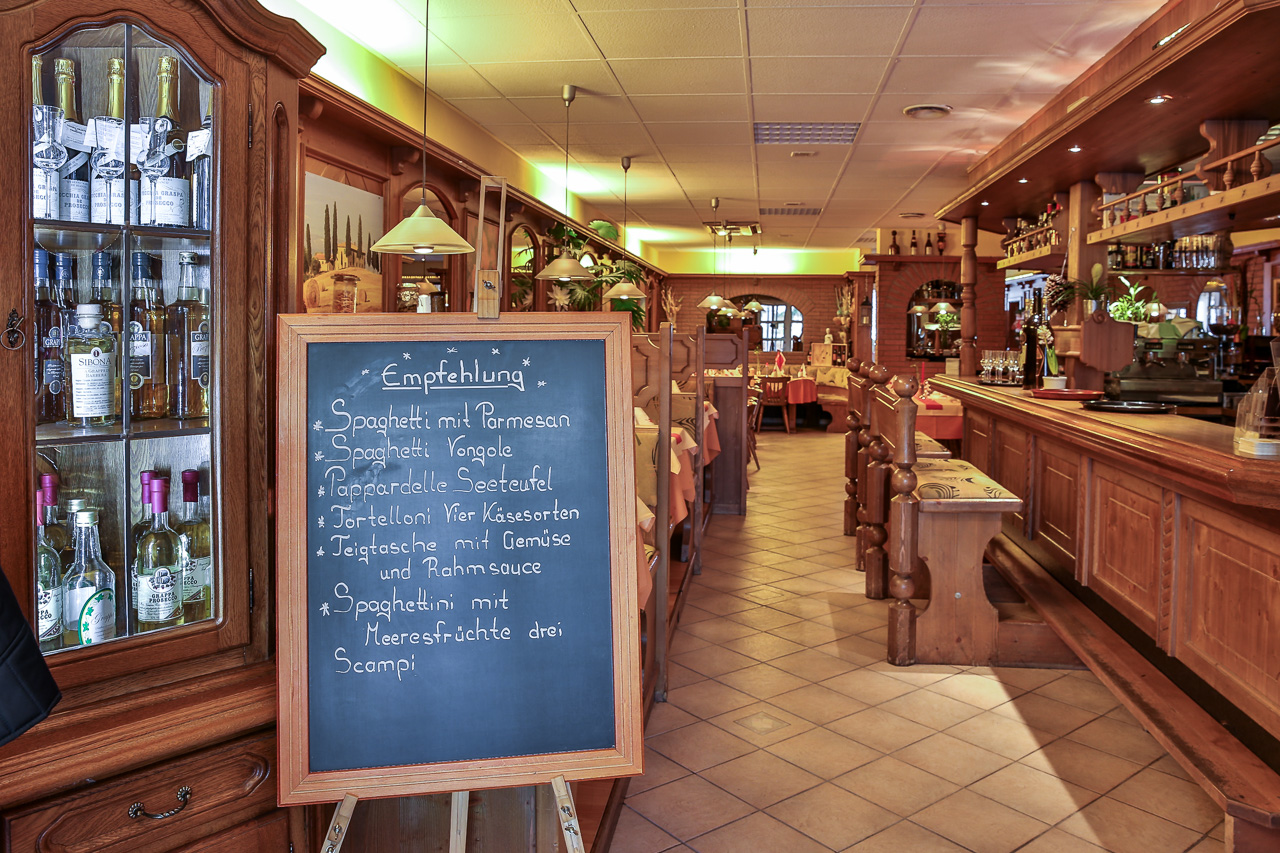 Empfehlung
* Spaghetti mit Parmesan
* Spaghetti Vongole
* Pappardelle Seeteufel
* Tortelloni Vier Käsesorten
* Teigtasche mit Gemüse
und Rahmsauce
* Spaghettini mit
Meeresfrüchte drei
Scampi
SIBONA
GRAPPA
GRAPPA
PROSECCO